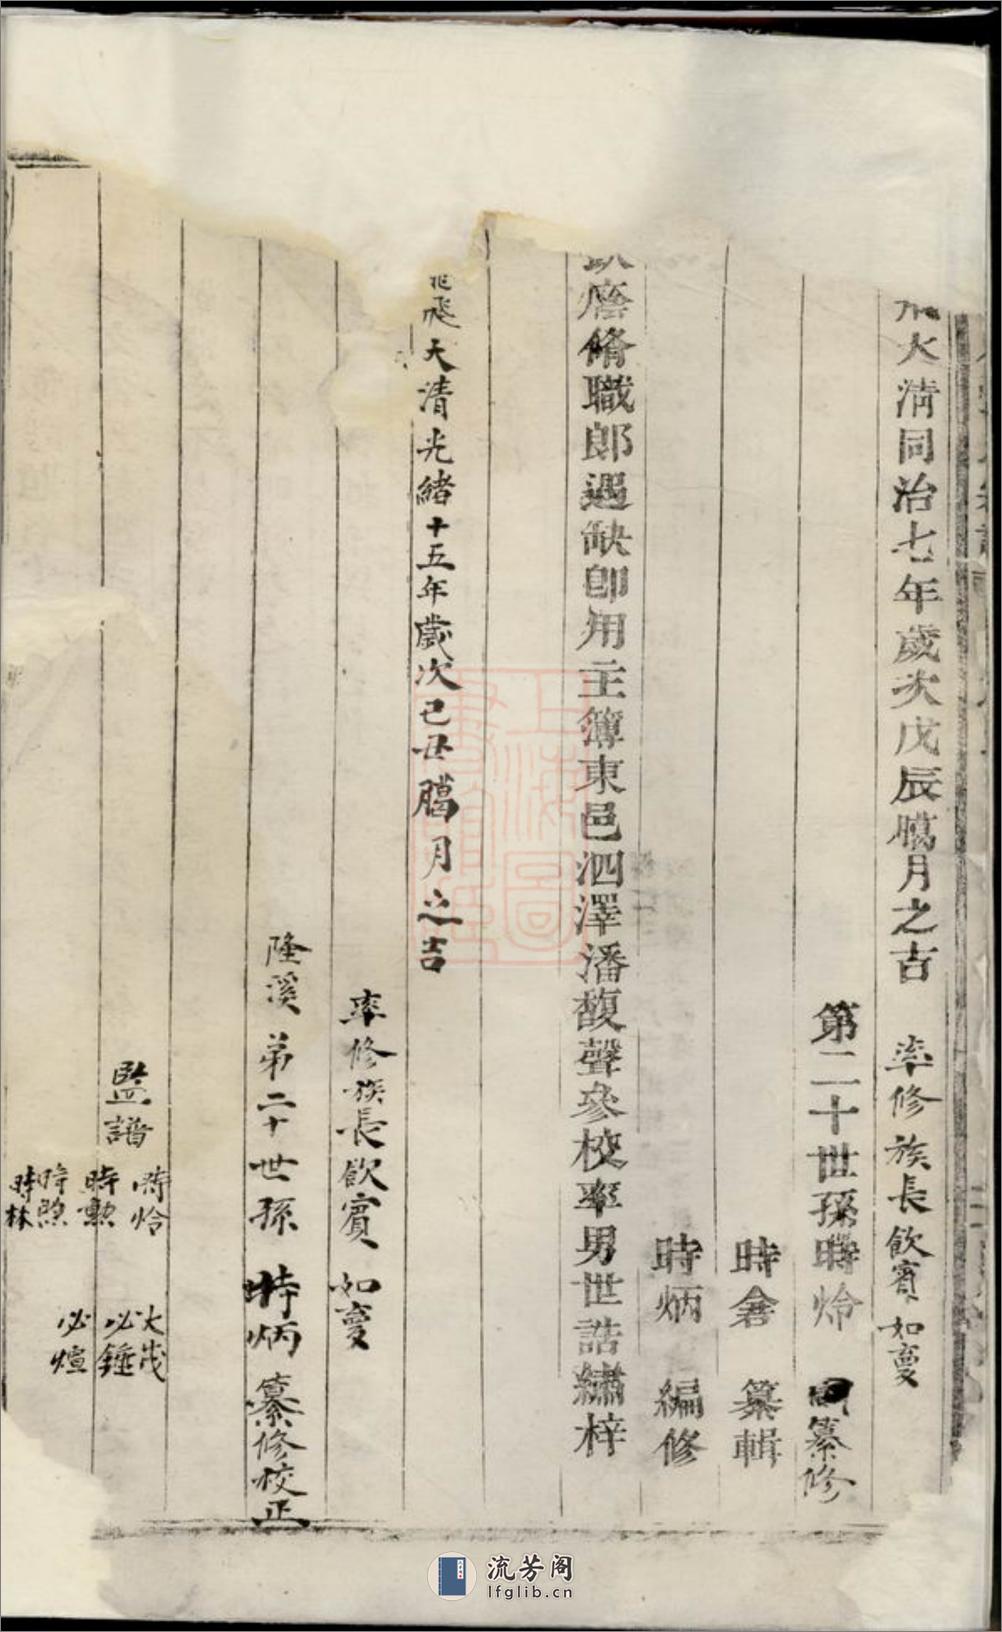 大清同治七年歲次戊辰臈月之吉 率修族長飲賓如䕫
第二十世孫時炩 纂修
時龕 纂輯
時炳 編修
廕脩職郎遇缺卽用主簿東邑泗澤潘馥聲參校率男世誥繡梓
飛大清光緒十五年歲次己丑臈月之吉
率修族長飲賓如䕫
隆溪第二十世孫時炳纂修校正
監譜
時炩 大茂
時勳 必錘
時煦 必煊
時林
上海圖
書館藏
流芳阁
lfglib.cn